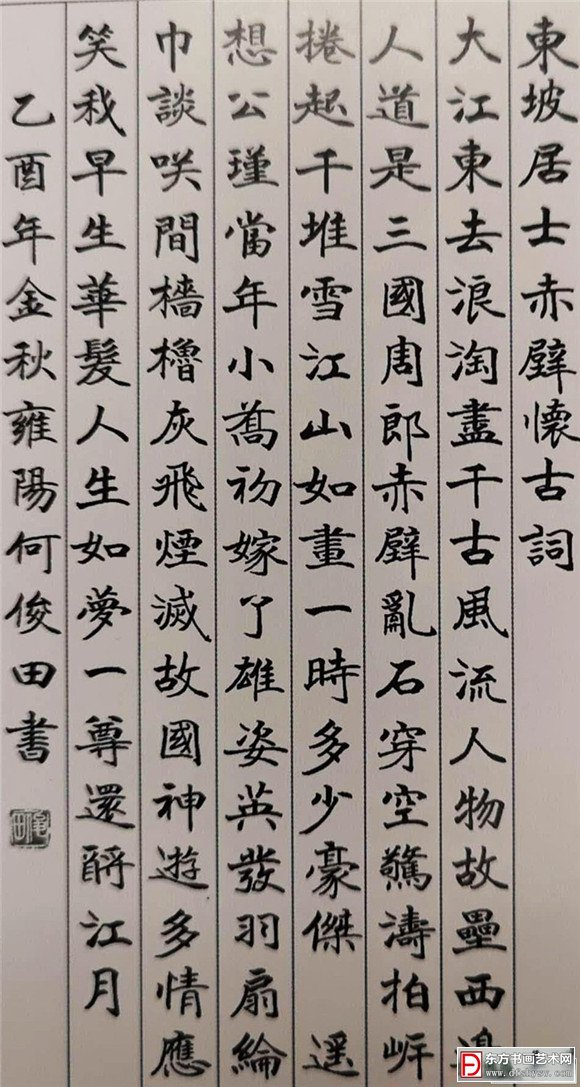 東坡居士赤壁懷古詞
大江東去浪淘盡千古風流人物故壘西邊
人道是三國周郎赤壁亂石穿空驚濤拍岸
捲起千堆雪江山如畫一時多少豪傑 遥
想公瑾當年小喬初嫁了雄姿英發羽扇綸
巾談咲間檣櫓灰飛煙滅故國神遊多情應
笑我早生華髮人生如夢一尊還酹江月
乙酉年金秋雍陽何俊田書
东方书画艺术网